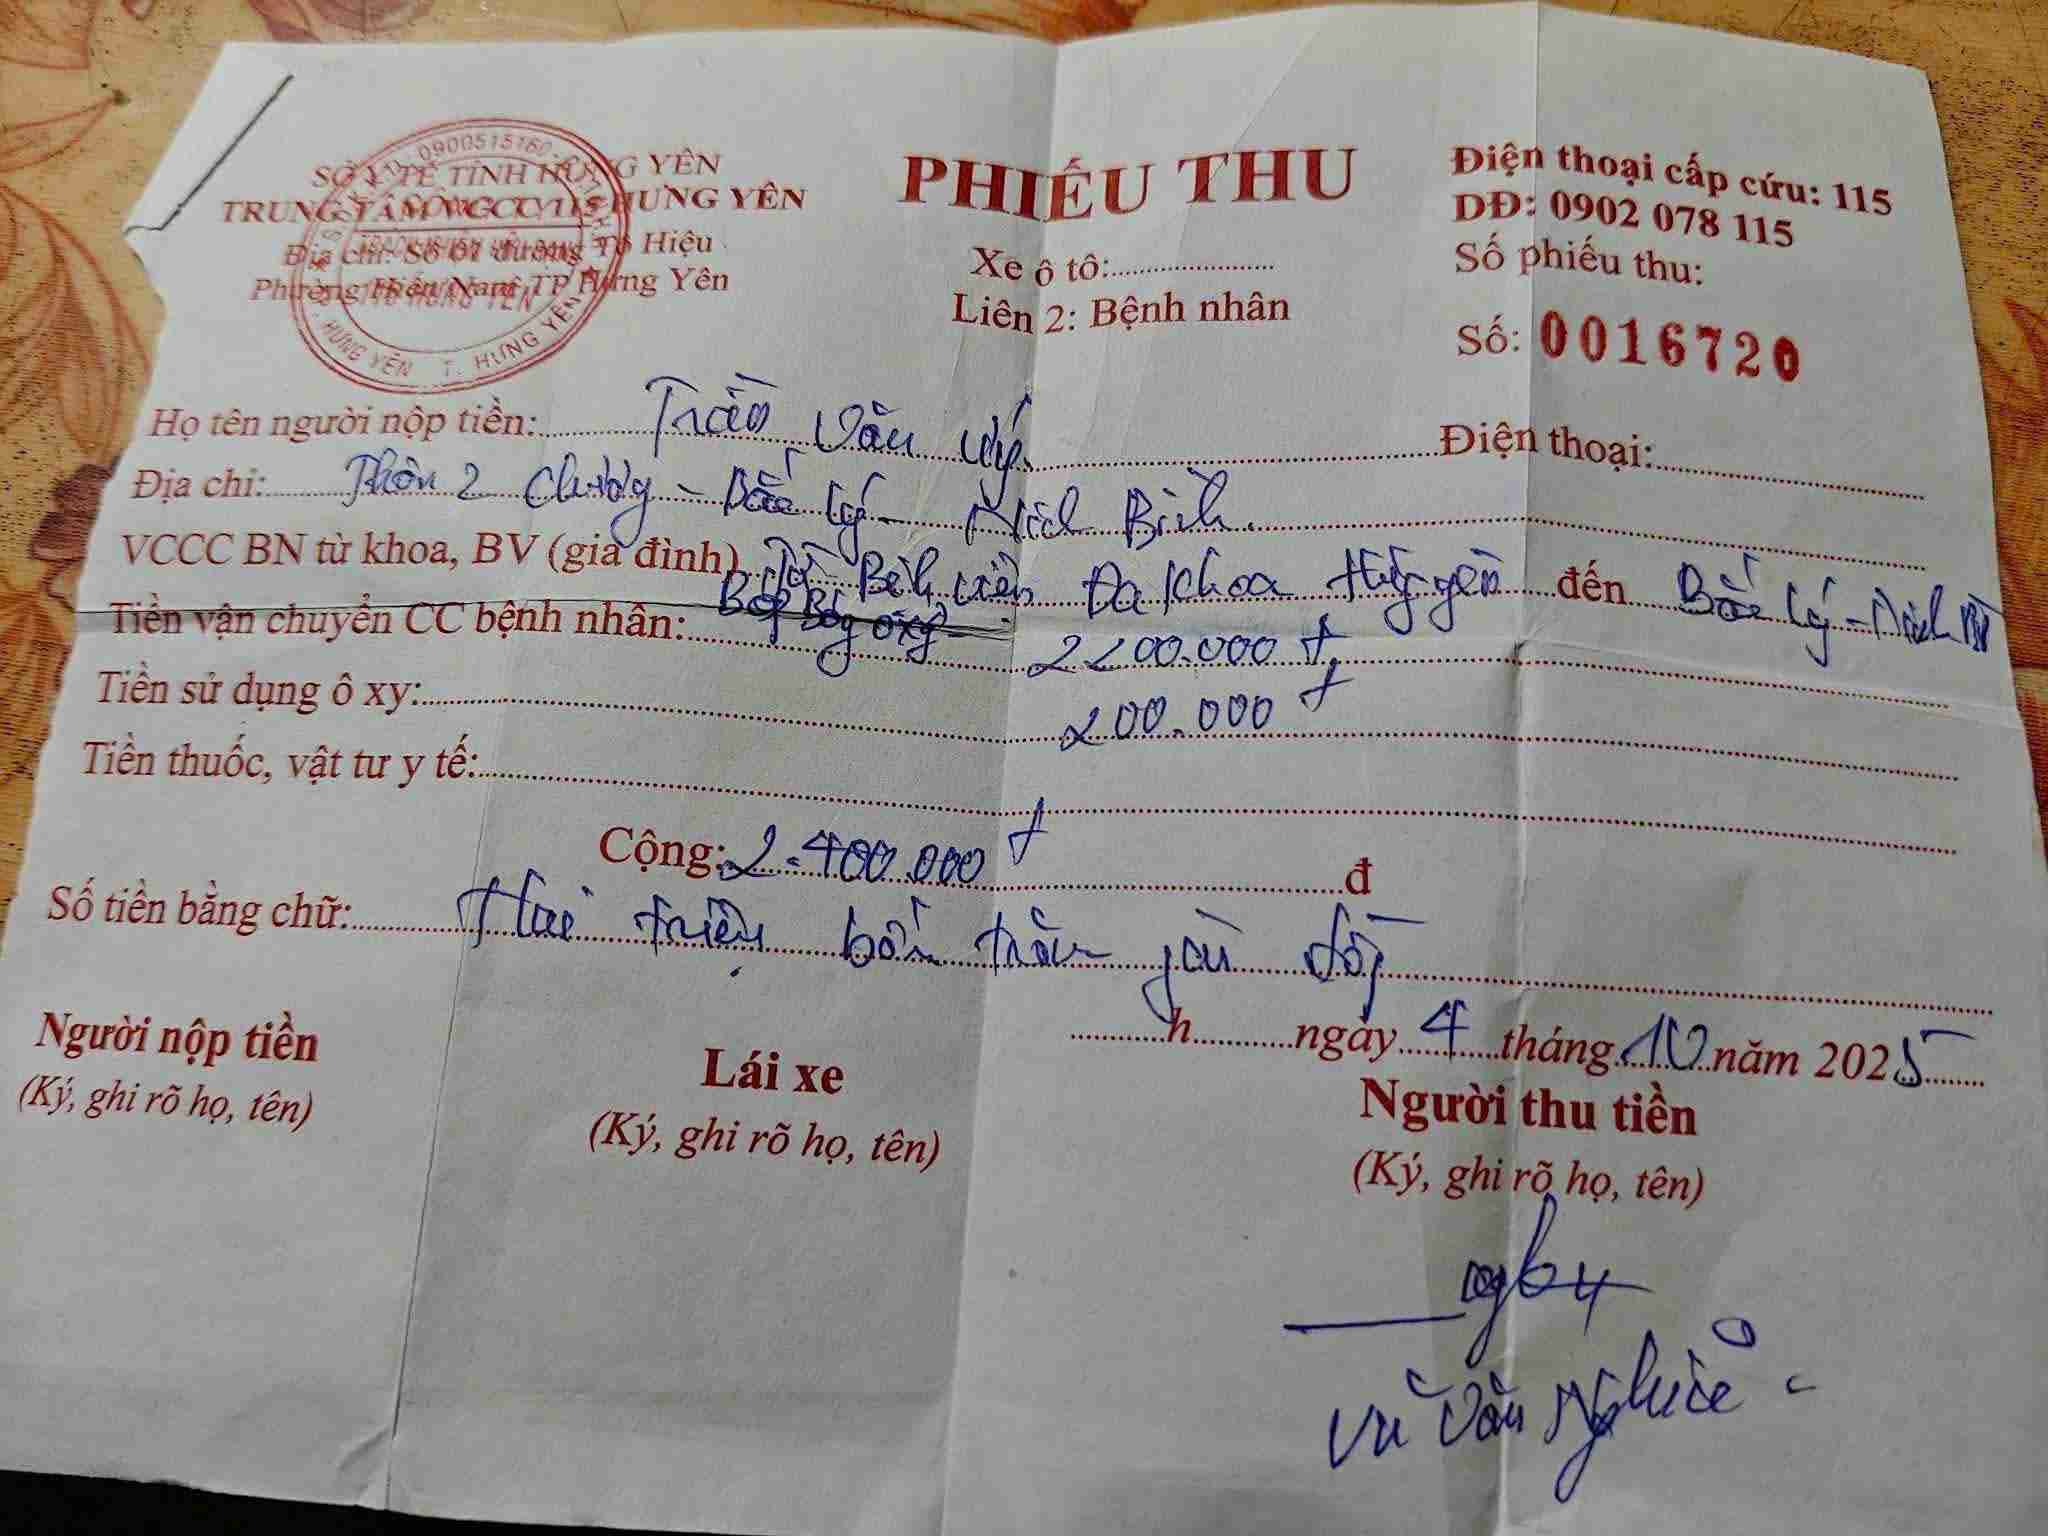 SỞ Y TẾ TỈNH HƯNG YÊN
TRUNG TÂM VCCC 115 HƯNG YÊN
Địa chỉ: Số 01 đường Tô Hiệu
Phường Hiến Nam, TP Hưng Yên
0900515160
HƯNG YÊN T. HƯNG YÊN
PHIẾU THU
Xe ô tô:
Liên 2: Bệnh nhân
Điện thoại cấp cứu: 115
DĐ: 0902 078 115
Số phiếu thu:
Số: 0016720
Họ tên người nộp tiền: Trần Văn Điện thoại:
Địa chỉ: Thôn 2 Chương - Bắc Lý - Ninh Bình.
VCCC BN từ khoa, BV (gia đình) Từ Bệnh viện Đa khoa Hưng yên đến Bắc Lý - Ninh
Tiền vận chuyển CC bệnh nhân: Bóp Bóng oxy 2200.000 đ
Tiền sử dụng ô xy: 200.000 đ
Tiền thuốc, vật tư y tế:
Cộng: 2.400.000 đ đ
Số tiền bằng chữ: Hai triệu bốn trăm đồng
h ngày 4 tháng 10 năm 2025
Người nộp tiền
(Ký, ghi rõ họ, tên)
Lái xe
(Ký, ghi rõ họ, tên)
Người thu tiền
(Ký, ghi rõ họ, tên)
Vũ Văn